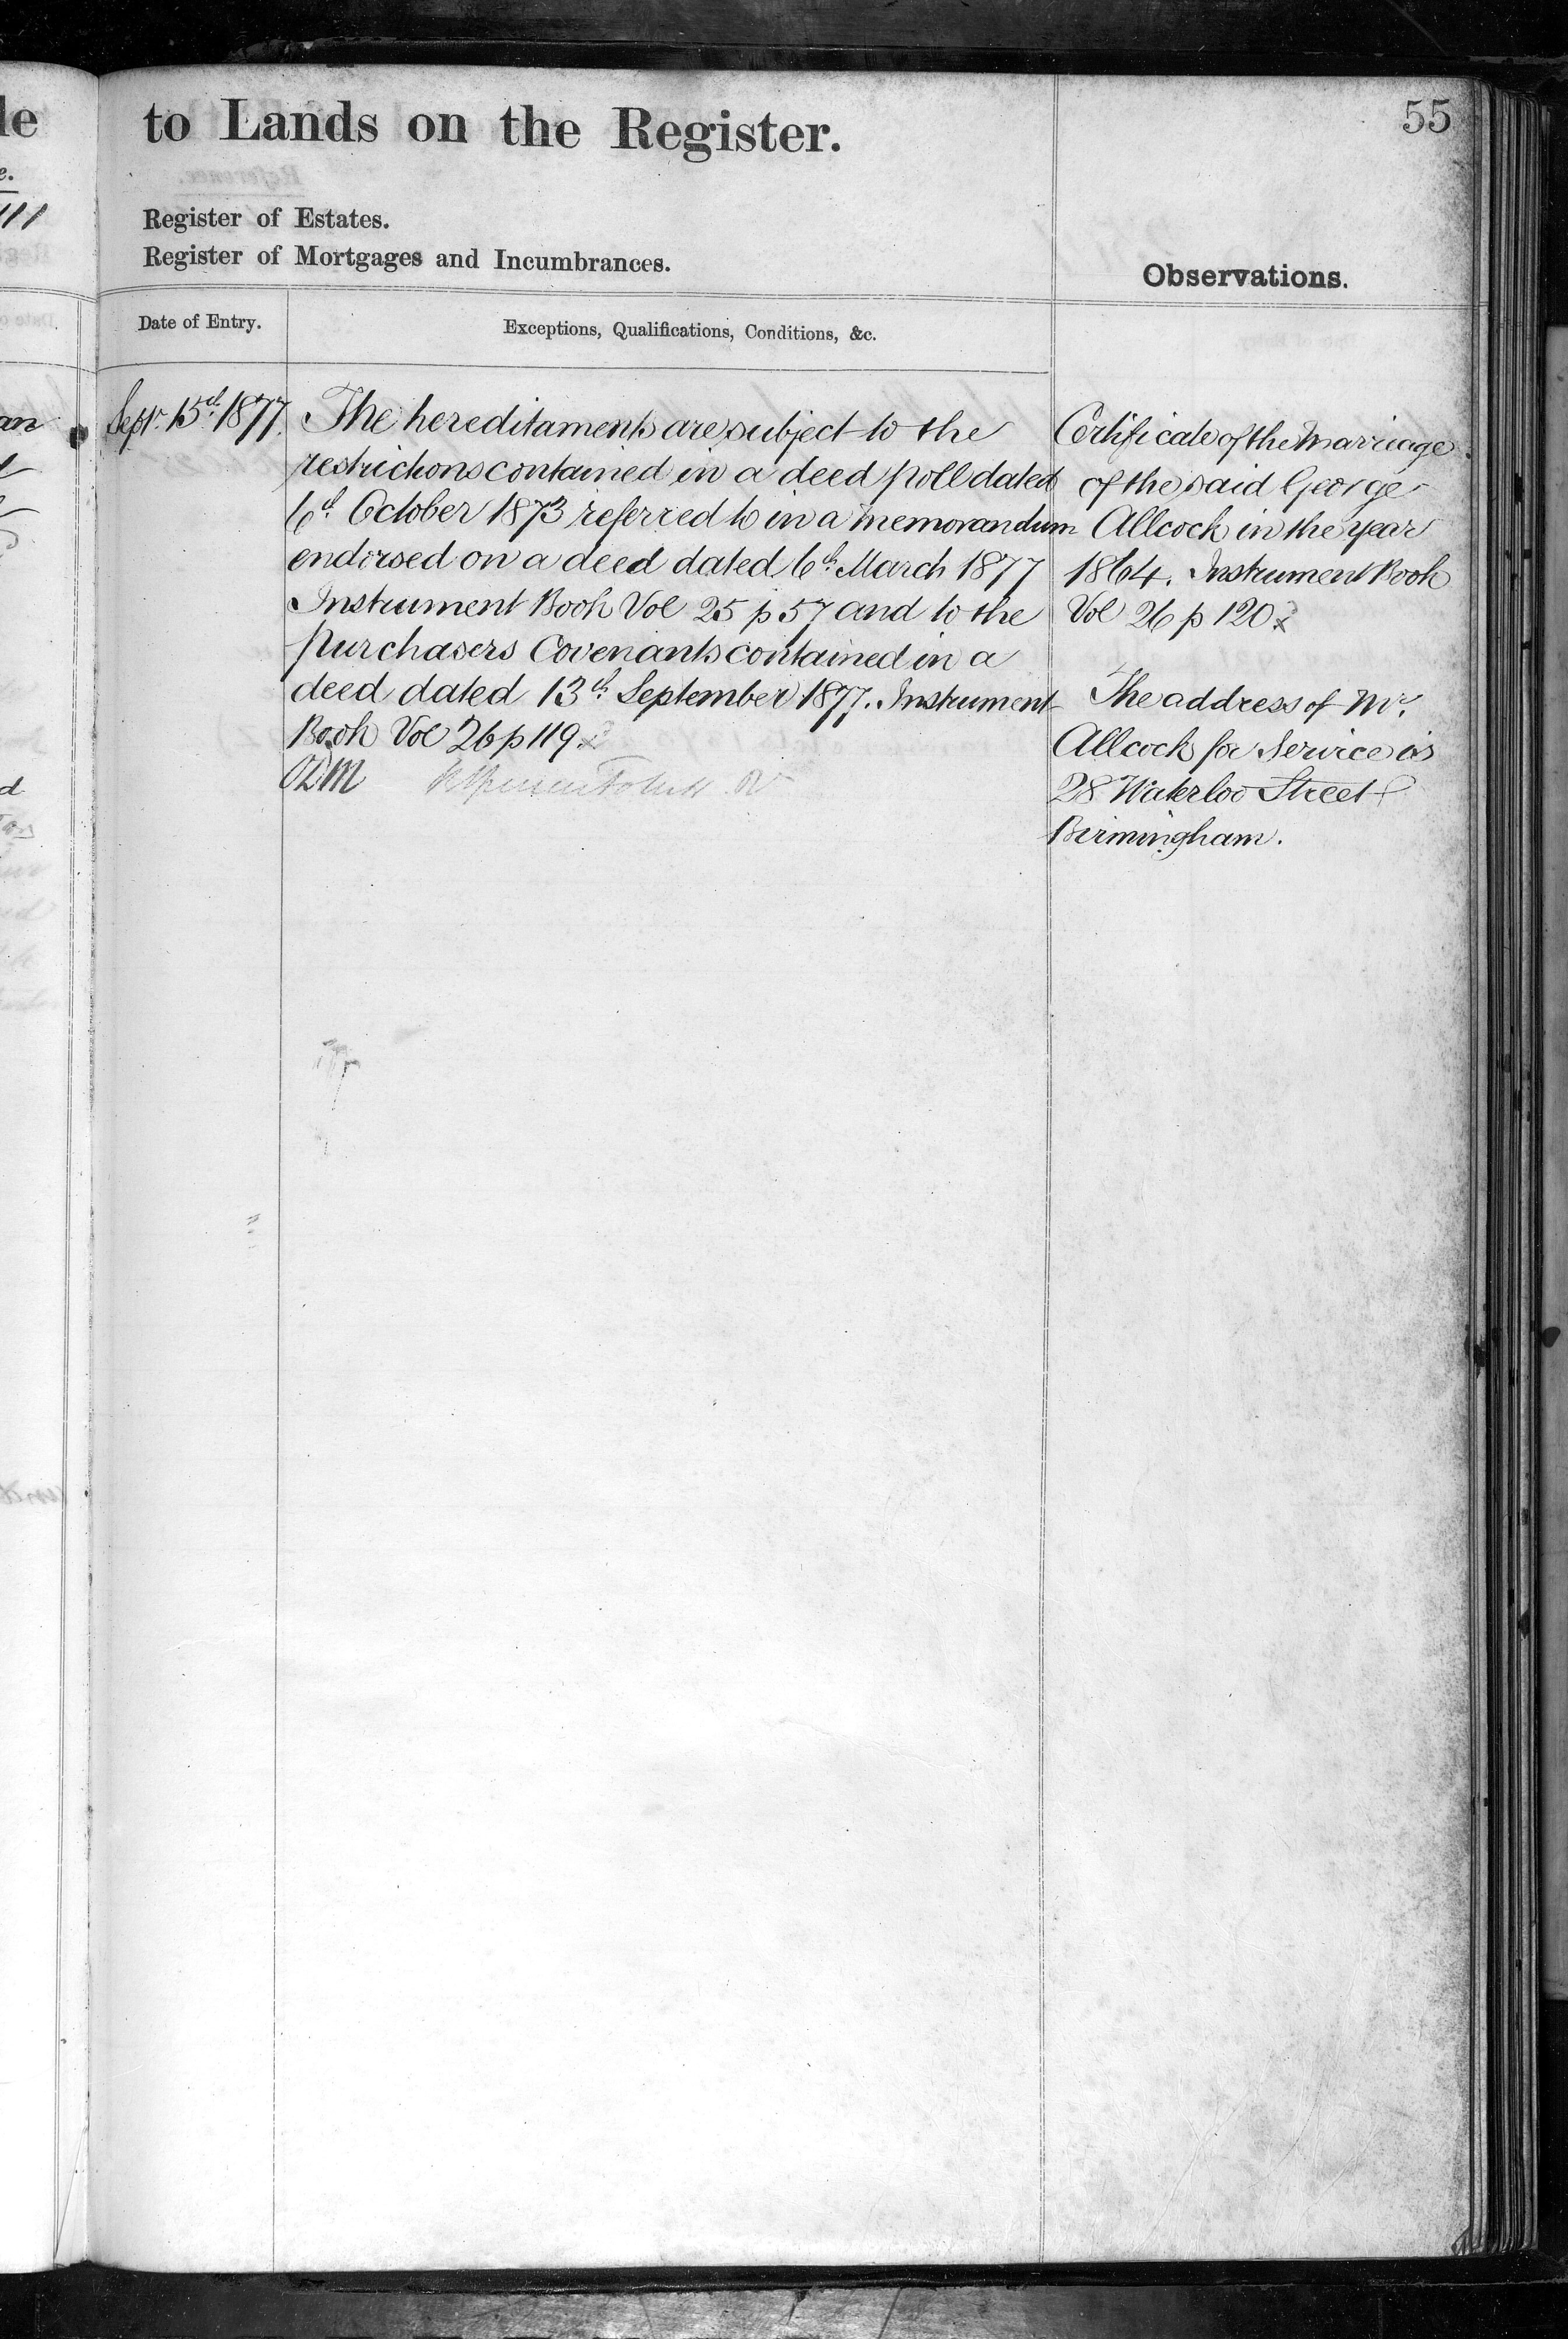 to Lands on the Register.
55
Register of Estates.
Register of Mortgages and Incumbrances.
Observations.
Date of Entry.
Exceptions, Qualifications, Conditions, &c.
Sept. 15th 1877.
The hereditaments are subject to the
restrictions contained in a deed poll dated
6th October 1873 referred to in a memorandum
endorsed on a deed dated 6th March 1877
Instrument Book Vol 25 p 57 and to the
purchasers Covenants contained in a
deed dated 13th September 1877. Instrument
Book Vol 26 p 119
ODM
Certificate of the Marriage
of the said George
Allcock in the year
1864. Instrument Book
Vol 26 p 120
The address of Mr.
Allcock for Service is
28 Waterloo Street
Birmingham.